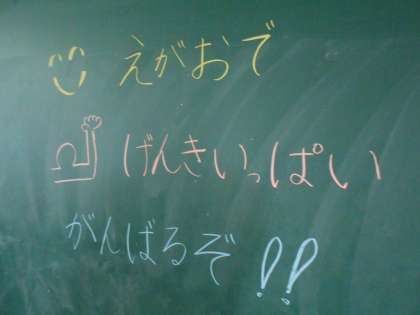 えがおで
げんきいっぱい
がんばるぞ!!